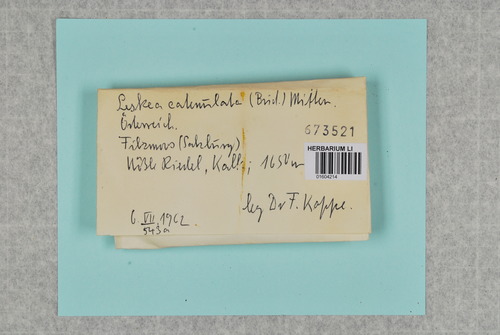 Leskea catenulata (Brid.) Mitten.
Österreich.
673521
Filzmoos (Salzburg)
HERBARIUM LI
Riedel, Kalk; 1650 m
01604214
leg Dr F. Koppe.
6. VII. 1962.
543a